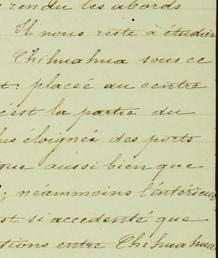 rendu les abords
Il nous reste à étudier
Chihuahua sous ce
placé au centre
c'est la partie du
plus éloignée des ports
que aussi bien que
néanmoins l'intérieur
est si accidenté que
tions entre Chihuahua